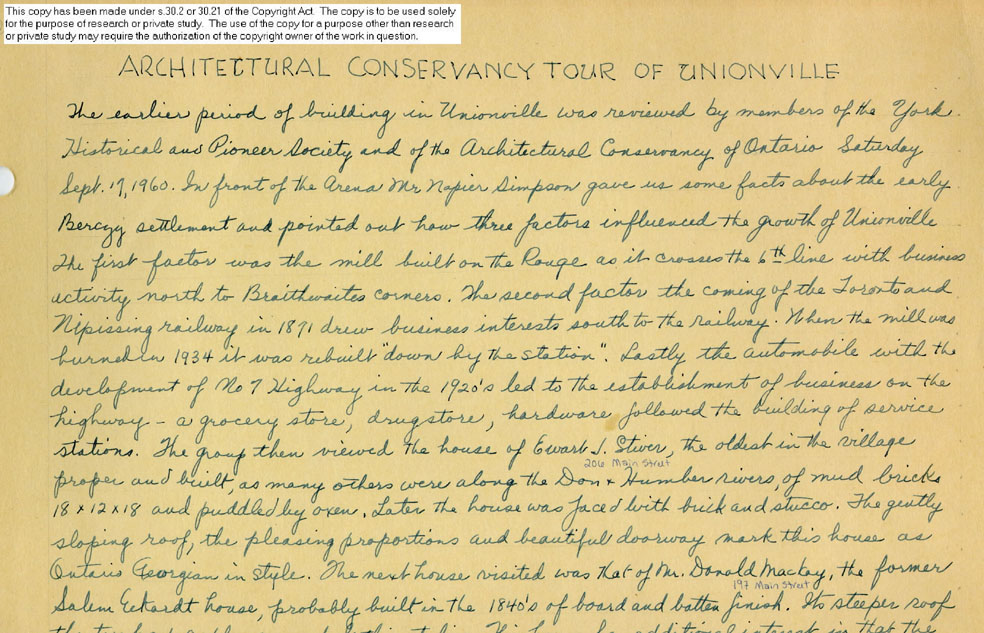 This copy has been made under s.30.2 or 30.21 of the Copyright Act. The copy is to be used solely
for the purpose of research or private study. The use of the copy for a purpose other than research
or private study may require the authorization of the copyright owner of the work in question.
ARCHITECTURAL CONSERVANCY TOUR OF UNIONVILLE
The earlier period of building in Unionville was reviewed by members of the York
Historical and Pioneer Society and of the Architectural Conservancy of Ontario Saturday
Sept. 17, 1960. In front of the Arena Mr Napier Simpson gave us some facts about the early
Berczy settlement and pointed out how three factors influenced the growth of Unionville
The first factor was the mill built on the Rouge as it crosses the 6th line with business
activity north to Braithwaites corners. The second factor the coming of the Toronto and
Nipissing railway in 1871 drew business interests south to the railway. When the mill was
burned in 1934 it was rebuilt "down by the station". Lastly the automobile with the
development of No 7 Highway in the 1920's led to the establishment of business on the
highway - a grocery store, drugstore, hardware followed the building of service
stations. The group then viewed the house of Ewart J. Stiver, the oldest in the village
206 Main Street
proper and built, as many others were along the Don + Humber rivers, of mud bricks
18 x 12 x 18 and puddled by oxen. Later the house was faced with brick and stucco. The gently
sloping roof, the pleasing proportions and beautiful doorway mark this house as
Ontario Georgian in style. The next house visited was that of Mr. Donald Mackay, the former
197 Main Street
Salem Eckardt house, probably built in the 1840's of board and batten finish. Its steeper roof